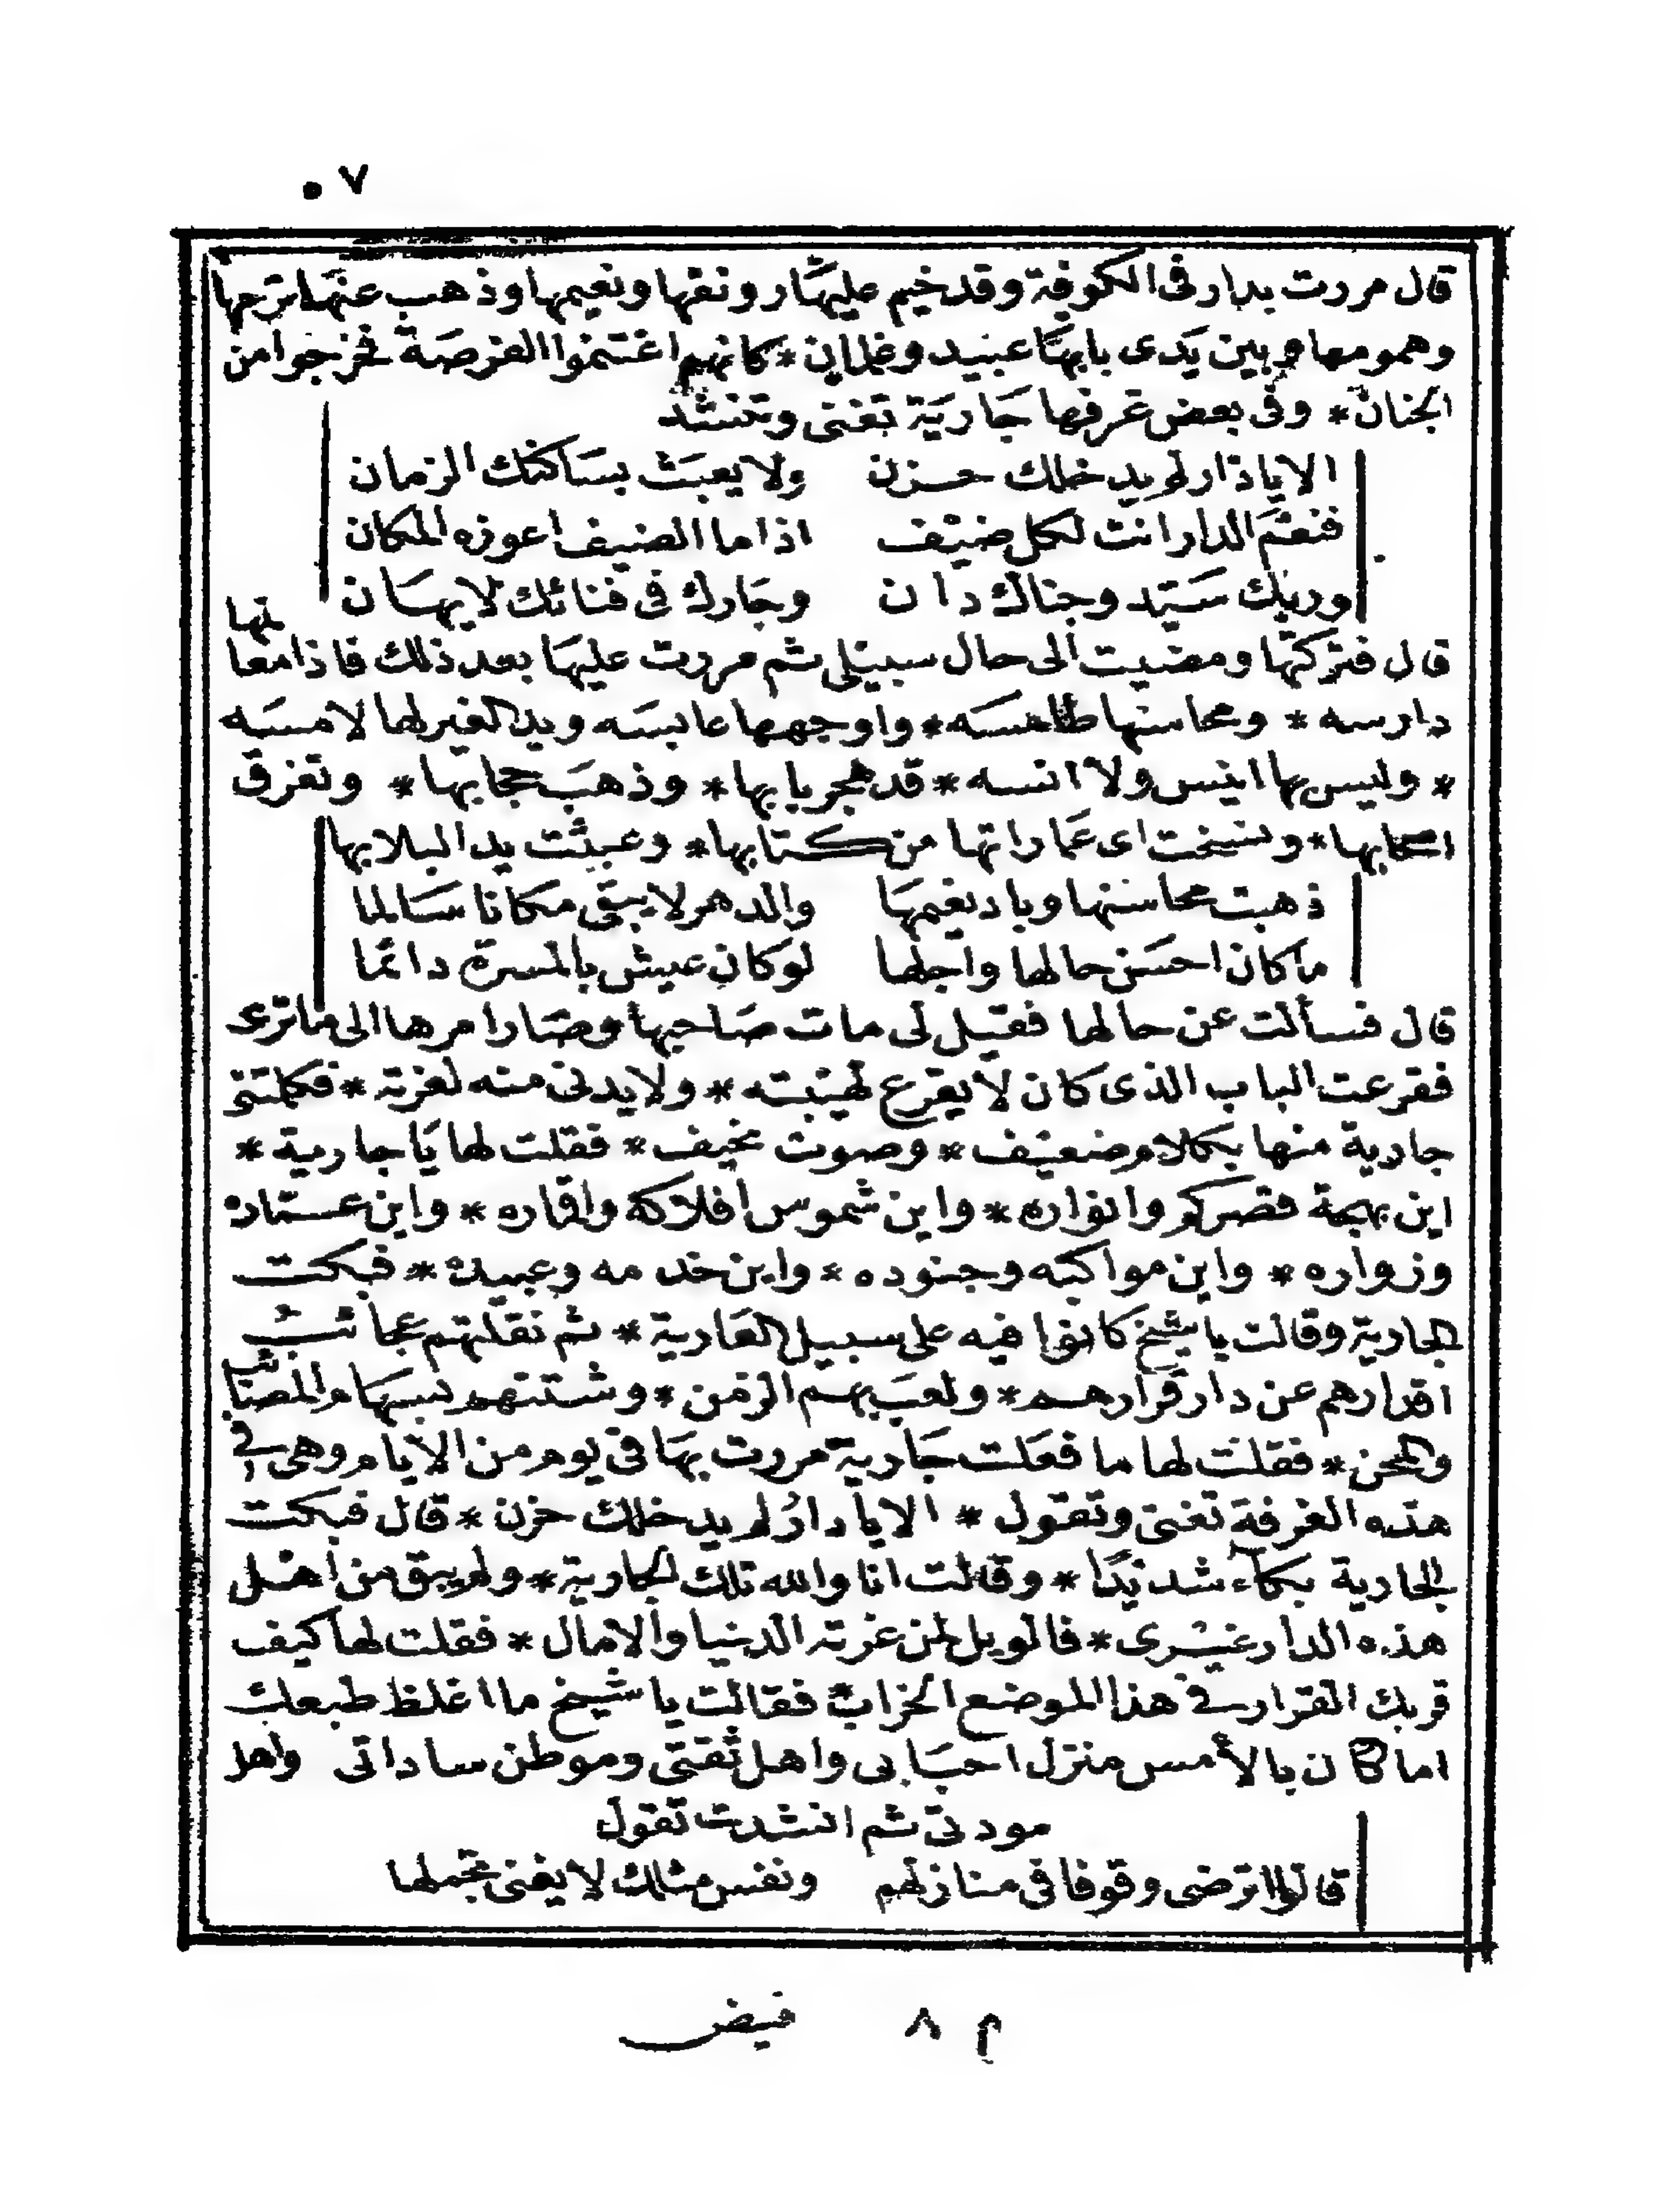 ٥٧
قال مررت بدار فى الكوفة وقد خيم عليها رونقها ونعيمها وذهب عنها ترحها
وهمومها وبين يدى بابها عبيد وغلمان * كانهم اغتنموا الفرصة فخرجوا من
الجنان * وفى بعض غرفها جارية تغنى وتنشد
الا يا دار لم يدخلك حزن ولا يعبث بساكنك الزمان
فنعم الدار انت لكل ضيف اذا ما الضيف اعوزه المكان
وربك سيد وجناك دان وجارك فى فنائك لا يهان
قال فتركتها ومضيت الى حال سبيلى ثم مررت عليها بعد ذلك فاذا معالمها
دارسه * ومحاسنها طامسه * واوجهها عابسه ويد الغير لها لامسه
* وليس بها انيس ولا انسه * قد هجر بابها * وذهب حجابها * وتفرق
اصحابها * ونسخت اى عماراتها من كتابها * وعبثت يد البلا بها
ذهبت محاسنها وباد نعيمها والدهر لا يبقى مكانا سالما
ما كان احسن حالها واجلها لو كان عيش بالمسرة دائما
قال فسألت عن حالها فقيل لى مات صاحبها وصار امرها الى ما ترى
فقرعت الباب الذى كان لا يقرع لهيبته * ولا يدنى منه لعزته * فكلمتنى
جارية منها بكلام ضعيف * وصوت نحيف * فقلت لها يا جارية *
اين بهجة قصركم وانواره * واين شموس افلاكه واقماره * واين عماده
وزواره * واين مواكبه وجنوده * واين خدمه وعبيده * فبكت
الجارية وقالت يا شيخ كانوا فيه على سبيل العارية * ثم نقلتهم عجائب
اقدارهم عن دار قرارهم * ولعب بهم الزمن * وشتتهم بسهام المصائب
والمحن * فقلت لها ما فعلت جارية مررت بها فى يوم من الايام وهى فى
هذه الغرفة تغنى وتقول * الا يا دار لم يدخلك حزن * قال فبكت
الجارية بكاء شديدا * وقالت انا والله تلك الجارية * ولم يبق من اهل
هذه الدار غيرى * فالويل لمن غرته الدنيا والامال * فقلت لها كيف
قربك القرار فى هذا الموضع الخراب فقالت يا شيخ ما اغلظ طبعك
اما كان بالأمس منزل احبابى واهل ثقتى وموطن ساداتى واهل
مودتى ثم انشدت تقول
قالوا اترضى وقوفا فى منازلهم ونفس مثلك لا يغنى تجملها
م ٨ فيض